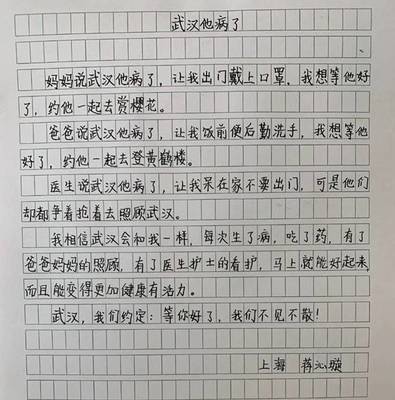 武汉他病了
妈妈说武汉他病了，让我出门戴上口罩，我想等他好
了，约他一起去赏樱花。
爸爸说武汉他病了，让我饭前便后勤洗手，我想等他
好了，约他一起去登黄鹤楼。
医生说武汉他病了，让我呆在家不要出门，可是他们
却都争着抢着去照顾武汉。
我相信武汉会和我一样，每次生了病，吃了药，有了
爸爸妈妈的照顾，有了医生护士的看护，马上就能好起来，
而且能变得更加健康有活力。
武汉，我们约定：等你好了，我们不见不散！
上海 蒋沁璇